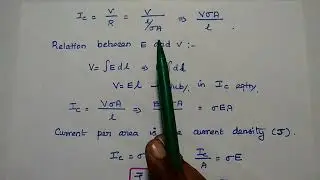 I_c = V/R = V/(l/σA) ⇒ VσA/l.
Relation between E and V :-
V = ∫E dl ⇒ ∫dl
V = El in I_c eqtn.
I_c = VσA/l ⇒ = σEA
Current per area is current density (J).
I_c = σ I_c/A = σE